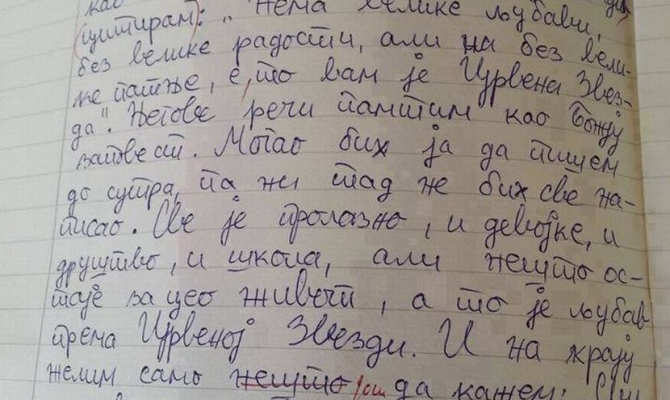 као
цитирам: „Нема велике љубави,
без велике радости, али ни без вели-
ке патње, е, то вам је Црвена Звез-
да". Његове речи памтим као Божју
заповест. Могао бих ја да пишем
до сутра, па ни тад не бих све на-
писао. Све је пролазно, и девојке, и
друштво, и школа, али нешто ос-
таје за цео живот, а то је љубав
према Црвеној Звезди. И на крају
желим само нешто још да кажем: